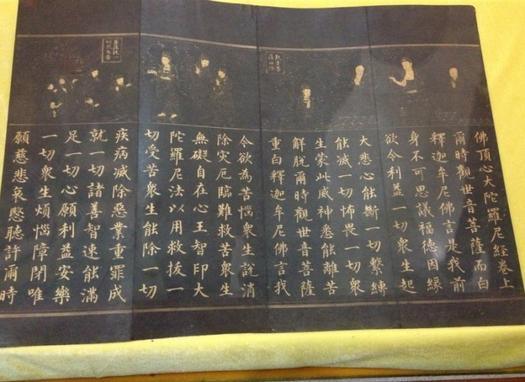 佛頂心大陀羅尼經卷上
爾時觀世音菩薩而白
釋迦牟尼佛言是我前
身不可思議福德因緣
欲令利益一切衆生起
大悲心能斷一切繫縛
能滅一切怖畏一切衆
生蒙此威神悉能離苦
解脱爾時觀世音菩薩
重白釋迦牟尼佛言我
今欲為苦惱衆生說消
除灾厄臨難救苦衆生
無礙自在心王智印大
陀羅尼法以用救拔一
切受苦衆生能除一切
疾病滅除惡業重罪成
就一切諸善智速能滿
足一切心願利益安樂
一切衆生煩惱障閉唯
願慈悲哀愍聽許爾時